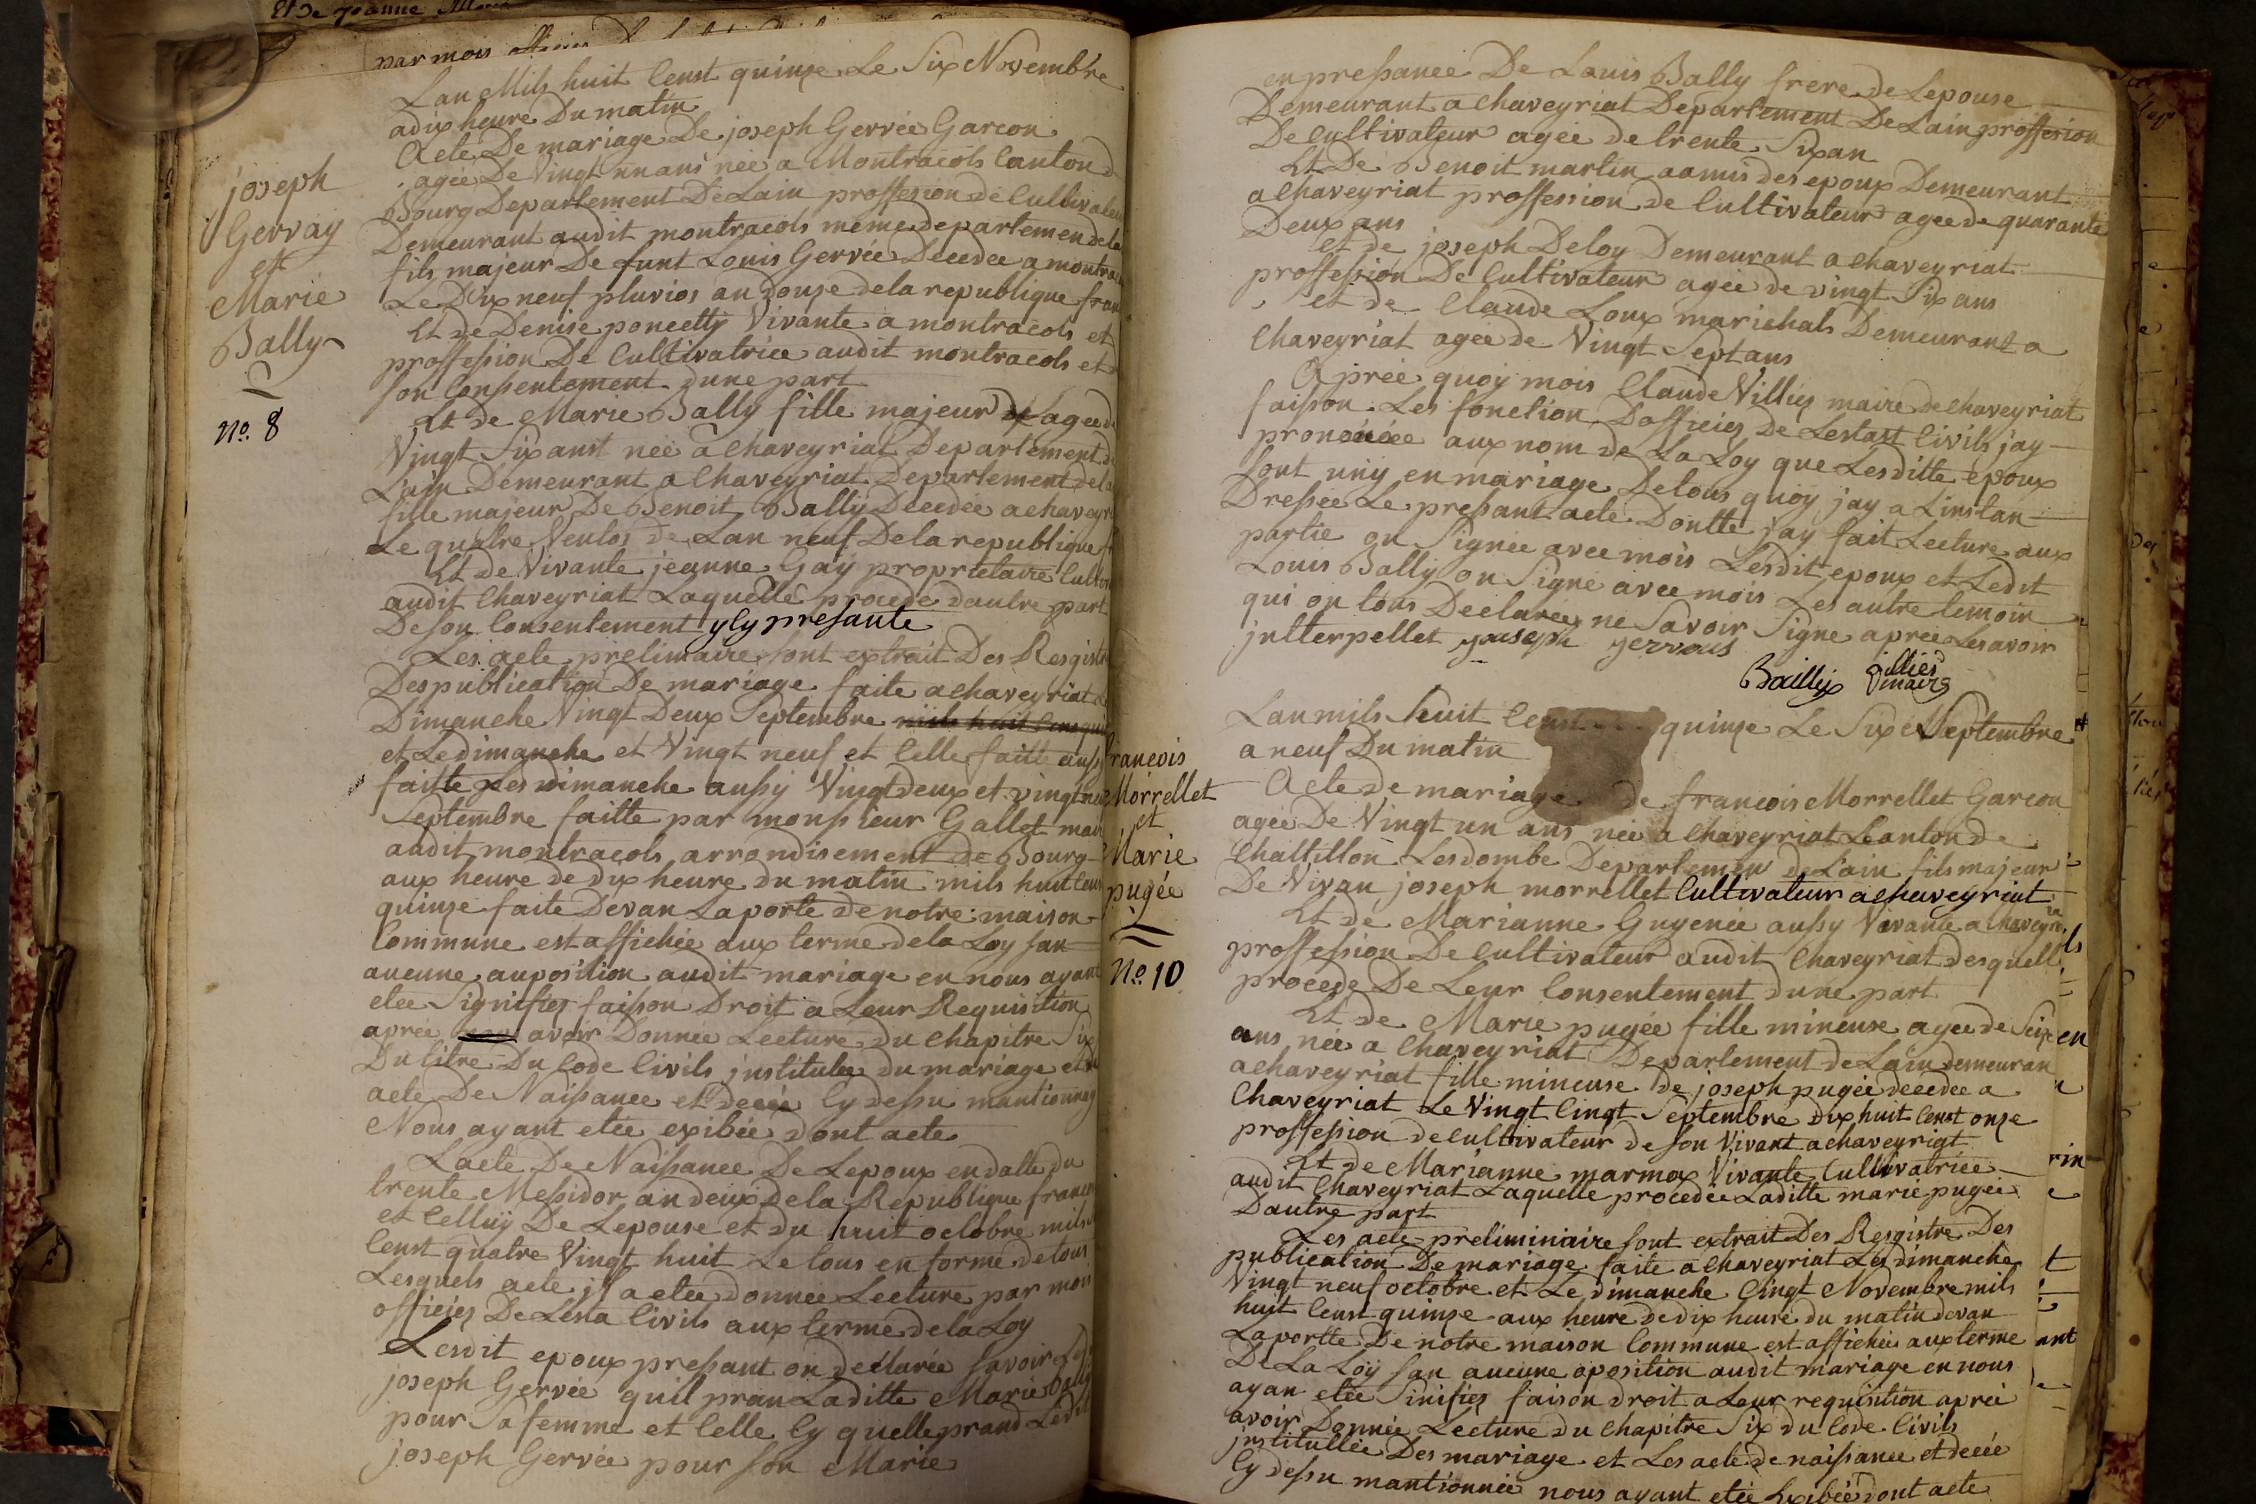 Et de jeanne
par mois
joseph
Gervay
et
Marie
Bally
No. 8
Lan Mils huit Censt quinze Le Six Novembre
a dix heure Du matin
Acte De mariage De joseph Gervée Garcon
agée De Vingt un ans née a Montracols Canton d
Bourg Departement De Lain proffession de Cultivateu
Demeurant audit montracols meme departemen de la
fils majeur De funt Louis Gervée Decedee a montra
Le Dix neuf pluvios an douze de la republique fran
Et de Denise poncetty Vivante a montracols et
proffession De Cultivatrice audit montracols et
son Consentement dune part
Et de Marie Bally fille majeur de agee d
Vingt Six anst née a Chaveyriat Departement d
Lain Demeurant a Chaveyriat Departement de la
fille majeur De Benoit Bally Decedée a chaveyr
Le quatre Ventos de Lan neuf De la republique f
Et de Vivante jeanne Gay proprietaire Cult
audit Chaveyriat Laquelle procede dautre part
De son Consentement y Cy presante
Les acte prelimaire sont extrait Des Resgistr
Des publication De mariage faite a chaveyriat L
Dimanche Vingt Deux Septembre mils huit Cens qu
et Le dimanche et Vingt neuf et Celle faitte aussy
faitte Les dimanche aussy Vingt deux et vingt neu
Septembre faitte par monsieur Gallet mair
audit montracols arrondisement de Bourg
aux heure de dix heure du matin mils huit Cens
quinze faite Devan La porte de notre maison
Commune est affichée aux terme de la Loy san
aucune auposition audit mariage en nous ayant
etee Signifiez faison Droit a Leur Requisition
aprée avoir Donnée Lecture du Chapitre Six
Du titre Du Code Civils jnstitulee du mariage et
acte De Naissance et decee Cy dessu mantionnez
Nous ayant etée exibée dont acte
Lacte De Naissance De Lepoux en datte du
trente Messidor an deux De la Republique franc
et Celluy De Lepouse et du huit octobre mils
Censt quatre Vingt huit Le tous en forme de tous
Lesquels acte jl a etee donnée Lecture par mois
officiez De Lesta Civils aux terme de la Loy
Lesdit epoux pressant on declarée savoir Le
joseph Gervée quil pran Laditte Marie Bally
pour Sa femme et Celle Cy quelle prand Ledit
joseph Gervée pour son Marie
en pressance De Louis Bally frere de Lepouse
Demeurant a chaveyriat Departement De Lain proffesion
De Cultivateur agée de trente Six an
Et De Benoit martin aamis des epoux Demeurant
a Chaveyriat proffession de Cultivateur agee de quarante
Deux ans
et de joseph Deloy Demeurant a chaveyriat
proffession De Cultivateur agée de vingt Six ans
et de Claude Loux marichals Demeurant a
Chaveyriat agée de Vingt Sept ans
Aprée quoy mois Claude Villiez maire de chaveyriat
faisson Les fonction Dofficiez De Lestast Civils jay
prononcée aux nom de La Loy que Lesditte epoux
sont uny en mariage De tous quoy jay a Linstan
Dressée Le pressant acte Dontte jay fait Lecture aux
partie on Signée avec mois Lesdit epoux et Ledit
Louis Bally on Signe avec mois Les autre temoin
qui on tous Declaree ne Savoir Signe apree Les avoir
jnlterpellet jouseph gervais
Baillij Villiés maire
francois
Morrellet
et
Marie
pugée
No. 10
Lan mils huit Censt quinze Le Six Septembre
a neuf Du matin
Acte de mariage de francois Morrellet Garcon
agée De Vingt un ans née a Chaveyriat Canton de
Chattillon Lesdombe Departemen de Lain fils majeur
De Vivan joseph morrellet Cultivateur a chaveyriat
Et de Marianne Guyenée aussy Vivante a chaveyria
proffession De Cultivateur audit Chaveyriat desquell
procede De Leur Consentement dune part
Et de Marie pugée fille mineuse agee de Seize
ans née a Chaveyriat Departement de Lain demeuran
a chaveyriat fille mineuse de joseph pugée decedée a
Chaveyriat Le Vingt Cingt Septembre dix huit Censt onze
proffession de Cultivateur de son Vivant a chaveyriat
Et de Marianne marmox Vivante Cultivatrice
audit Chaveyriat Laquelle procedée Laditte marie pugée
Dautre part
Les acte preliminiaire sont extrait Des Resgistre Des
publication De mariage faite a chaveyriat Les dimanche
Vingt neuf octobre et Le dimanche Cingt Novembre mils
huit Censt quinze aux heure de dix heure du matin devan
La portte De notre maison Commune est affichée aux terme
De La Loy san aucune oposition audit mariage en nous
ayan etée Sinifiez faison droit a Leur requisition aprée
avoir Donnée Lecture Du Chapitre Six du Code Civils
jnstitullée Des mariage et Les acte de naissance et decée
Cy dessu mantionnée nous ayant etée Exibée dont acte